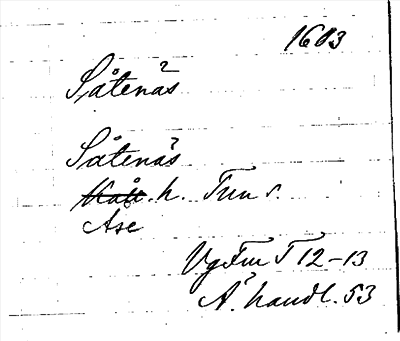 1613
Såtenäs
Såtenäs
Kåll. h. Tun s.
Åse
VgFm I 12-13
Ä. handl. 53